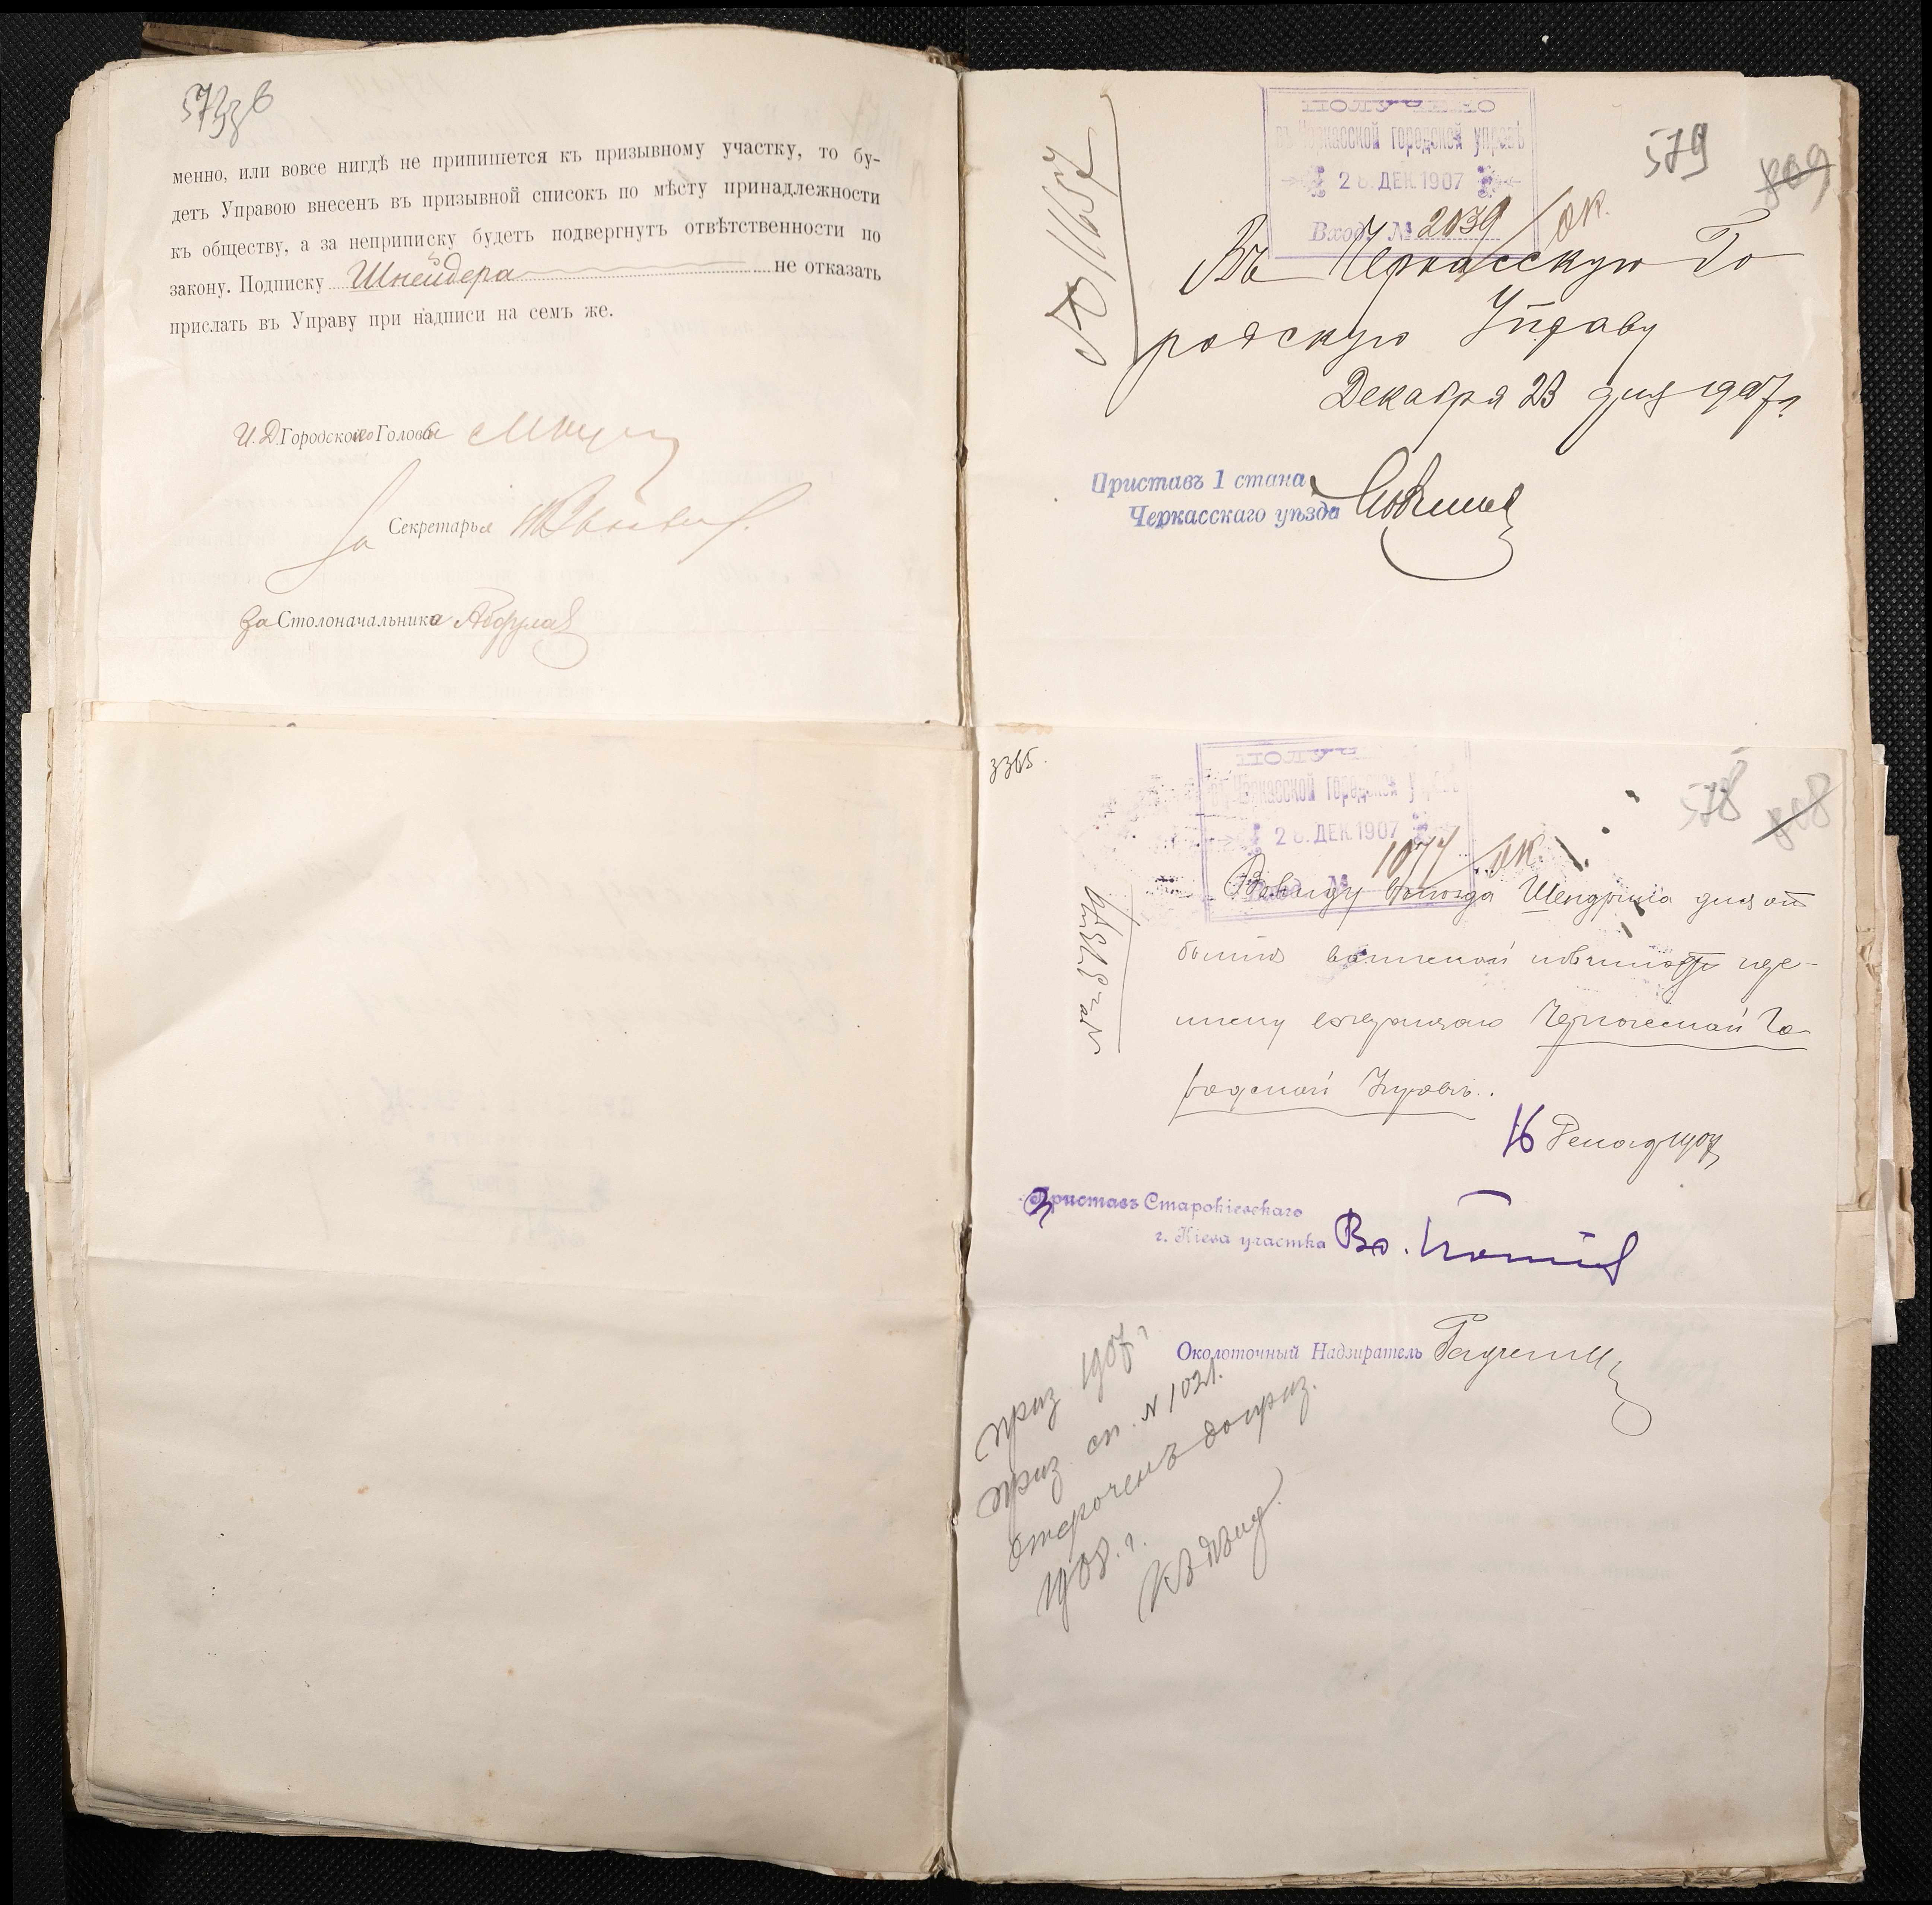 менно, или вовсе нигдѣ не припишется къ призывному участку, то бу-
детъ Управою внесенъ въ призывной списокъ по мѣсту принадлежности
къ обществу, а за неприписку будетъ подвергнутъ отвѣтственности по
закону. Подписку Шнейдера не отказать
прислать въ Управу при надписи на семъ же.
И. Д. Городского Головы
За Секретаря
За Столоначальника
ПОЛУЧЕНО
въ Черкасской городской управѣ
2 ДЕК. 1907
Вход. № 2039/ок.
579
809
№ 11657
Въ Черкасскую Го
родскую Управу
Декабря 23 дня 1907 г.
Приставъ 1 стана
Черкасскаго уѣзда
3365.
въ Черкасской городской
2 ДЕК. 1907
1077/ок.
578
808
Ввиду выѣзда Шендрика для от
бытія воинской повинности пре-
письку возвращаю Черкасской Го
родской Управѣ.
16 Декаб 1907
Приставъ Старокіевскаго
г. Кіева участка
Околоточный Надзиратель
приз 1907 г
приз. сп. № 1021.
отсроченъ до приз.
1908. г.